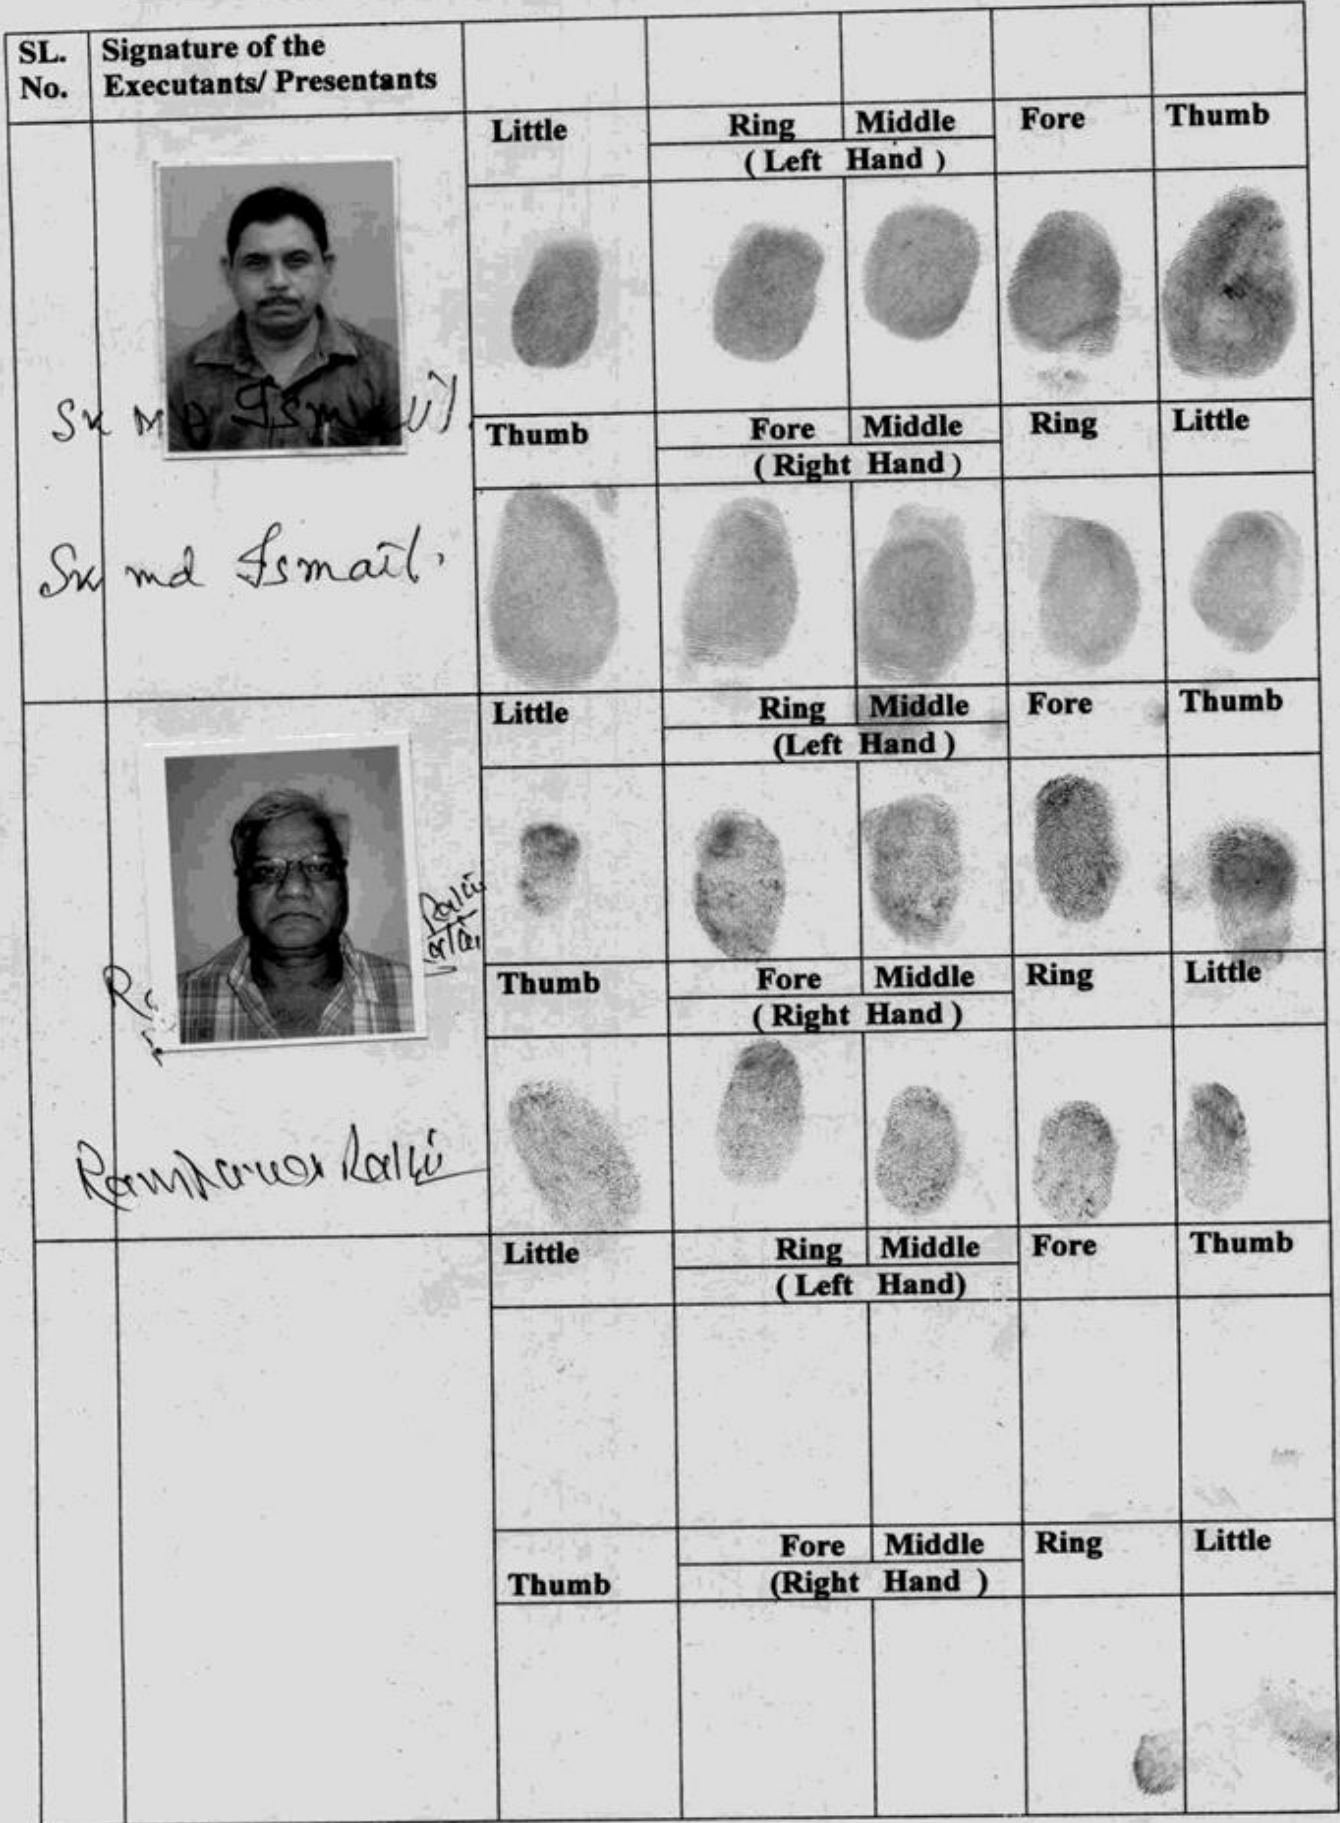 SL. No. Signature of the Executants/ Presentants
Little Ring Middle Fore Thumb
( Left Hand )
Sk MD Ismail
Thumb Fore Middle Ring Little
( Right Hand )
Sk md Ismail.
Little Ring Middle Fore Thumb
(Left Hand )
Thumb Fore Middle Ring Little
( Right Hand )
Little Ring Middle Fore Thumb
( Left Hand)
Fore Middle Ring Little
Thumb (Right Hand )